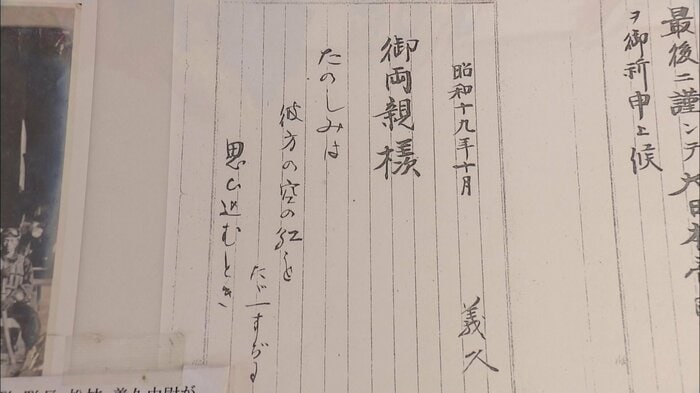 最後ニ謹ンテ大日本
ヲ御祈申上候
昭和十九年十月
義久
御両親様
たのしみは
彼方の空の紅を
たゞ一すぢに
思ひ込むとき
義久中尉が